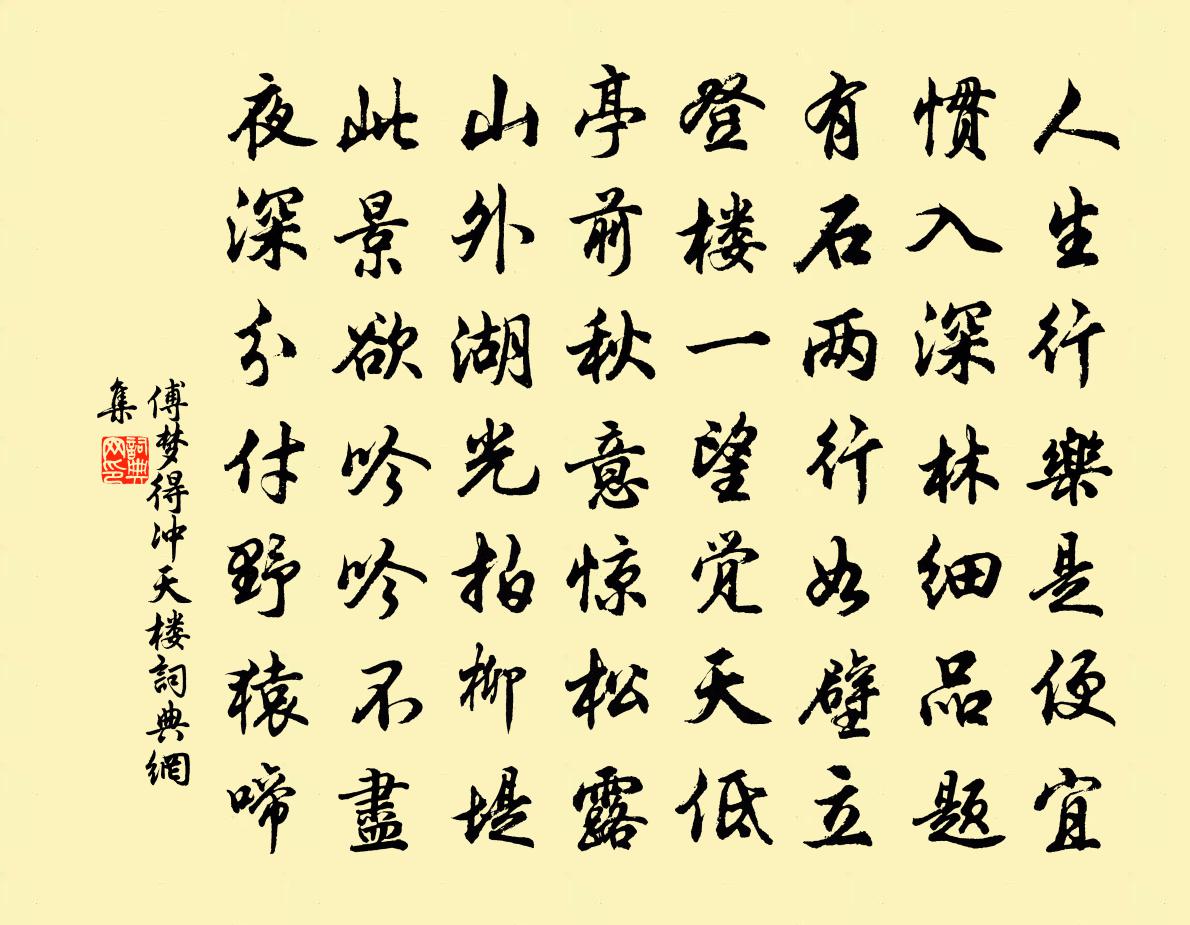 人生行樂是便宜
惯入深林细品题
有石两行如壁立
登楼一望觉天低
亭前秋意惊松露
山外湖光拍柳堤
此景欲吟吟不盡
夜深分付野猿啼
傅梦得冲天楼詞典網
集
詞典网印